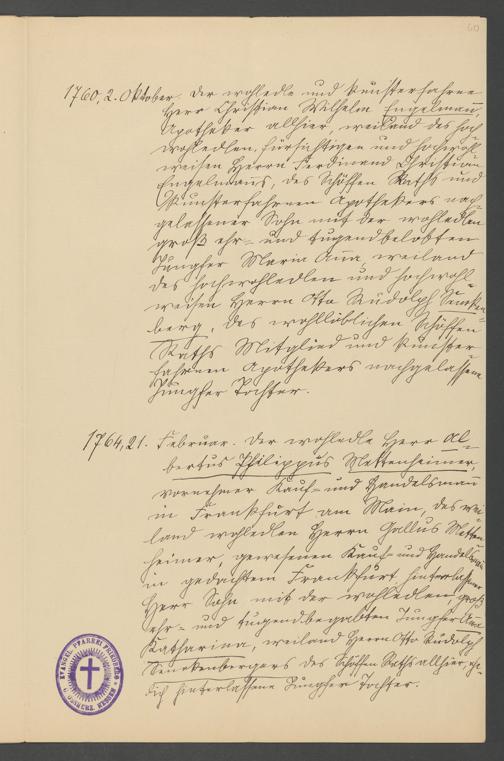 1760, 2. Oktober. Der wohledle und kunsterfahrne
Herr Christian Wilhelm Engelmann,
Apotheker allhier, weiland des hoch
wohledlen, fürsichtigen und hochwohl
weisen Herrn Ferdinand Christian
Engelmanns, des Schöffen Raths und
Kunsterfahrnen Apothekers nach-
gelassener Sohn mit der wohledlen
groß ehr- und tugendbelobten
Jungfer Maria Anna, weiland
des hochwohledlen und hochwohl-
weisen Herrn Otto Rudolph Sencken-
berg, des wohllöblichen Schöffen
Raths Mitglied und kunster
fahrnen Apothekers nachgelassene
Jungfer Tochter.
1764, 21. Februar. Der wohledle Herr Al-
bertus Philippus Mettenheimer,
vornehmer Kauf- und Handelsmann
in Frankfurt am Main, des wei
land wohledlen Herrn Gallus Metten
heimer, gewesenen Kauf- und Handelsmann
in gedachtem Frankfurt hinterlassener
Herr Sohn mit der wohledlen, groß
ehr- und tugendbegabten Jungfer Anna
Katharina, weiland Herrn Otto Rudolph
Senckenbergers des Schöffen Raths allhier, ehe-
lich hinterlassene Jungfer Tochter.
EVANGEL. PFARREI FRIEDBERG